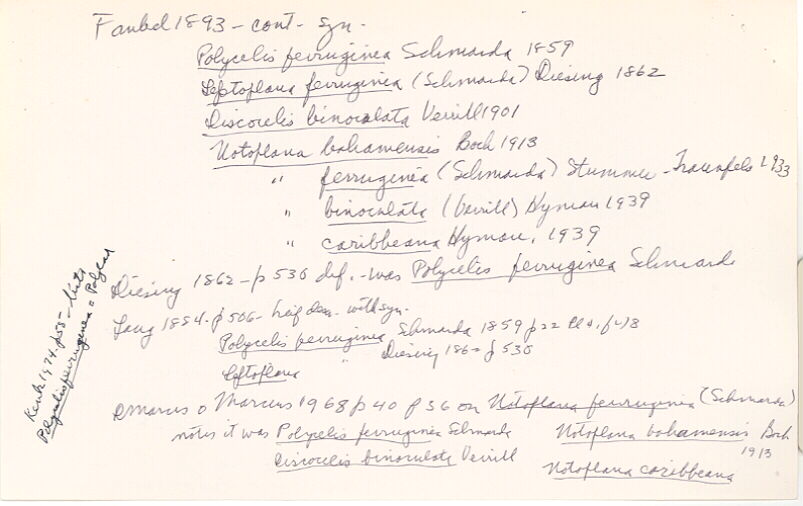 Faubel 1893 - cont - syn -
Polycelis ferruginea Schmarda 1859
Leptoplana ferruginea (Schmarda) Diesing 1862
Discocelis binoculata Verrill 1901
Notoplana bahamensis Bock 1913
" ferruginea (Schmarda) Stummer-Traunfels 1933
" binoculata (Verrill) Hyman 1939
" caribbeana Hyman, 1939
Diesing 1862 - p 530 def. - was Polycelis ferruginea Schmarda
Lang 1884 - p 506 - brief des - with syn -
Polycelis ferruginea Schmarda 1859 p 22
" Diesing 1862 p 530
Leptoplana
E Marcus & Marcus 1968 p 40 f 36 on Notoplana ferruginea (Schmarda)
notes it was Polycelis ferruginea Schmarda Notoplana bahamensis Bock 1913
Discocelis binoculata Verrill Notoplana caribbeana
Kenk 1974 - p 55 -
Polycelis ferruginea = Polyclad